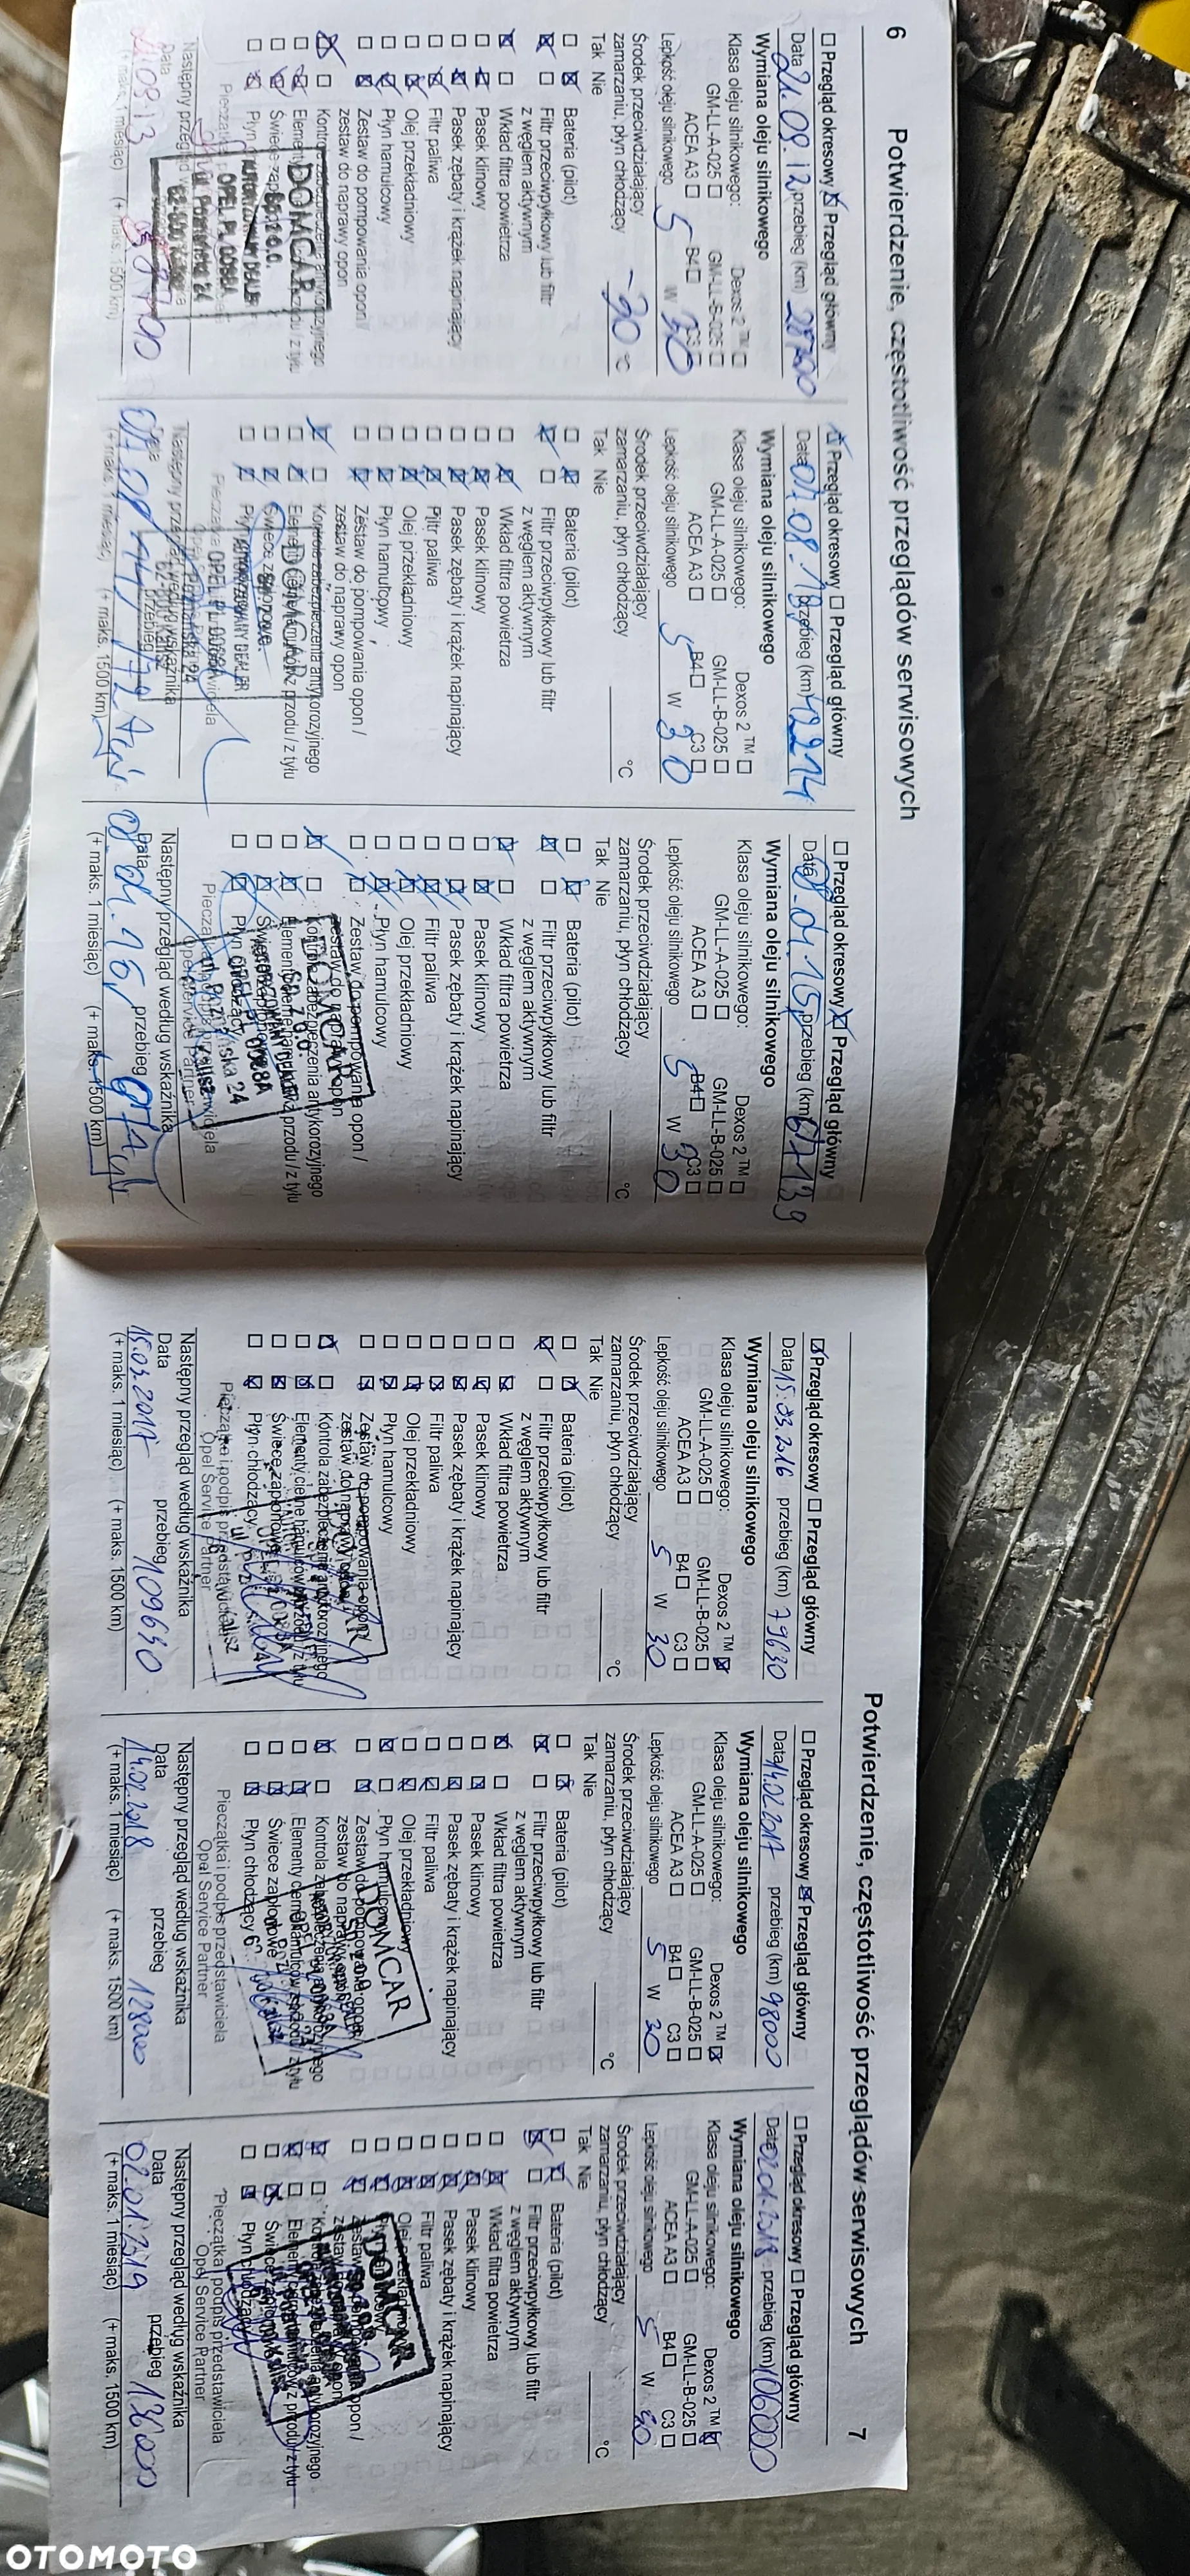 6
Potwierdzenie, częstotliwość przeglądów serwisowych
Przegląd okresowy Przegląd główny
Data 21.09.12 przebieg (km) 28700
Wymiana oleju silnikowego
Klasa oleju silnikowego: Dexos 2 ™
GM-LL-A-025 GM-LL-B-025
ACEA A3 B4 C3
Lepkość oleju silnikowego 5 W 30
Środek przeciwdziałający
zamarzaniu, płyn chłodzący -30 °C
Tak Nie
Bateria (pilot)
Filtr przeciwpyłkowy lub filtr
z węglem aktywnym
Wkład filtra powietrza
Pasek klinowy
Pasek zębaty i krążek napinający
Filtr paliwa
Olej przekładniowy
Płyn hamulcowy
Zestaw do pompowania opon /
zestaw do naprawy opon
DOMCAR
Następny przegląd
Data
(+ maks. 1 miesiąc) (+ maks. 1500 km)
Przegląd okresowy Przegląd główny
Data 01.08.13 przebieg (km) 42214
Wymiana oleju silnikowego
Klasa oleju silnikowego: Dexos 2 ™
GM-LL-A-025 GM-LL-B-025
ACEA A3 B4 C3
Lepkość oleju silnikowego 5 W 30
Środek przeciwdziałający
zamarzaniu, płyn chłodzący °C
Tak Nie
Bateria (pilot)
Filtr przeciwpyłkowy lub filtr
z węglem aktywnym
Wkład filtra powietrza
Pasek klinowy
Pasek zębaty i krążek napinający
Filtr paliwa
Olej przekładniowy
Płyn hamulcowy
Zestaw do pompowania opon /
zestaw do naprawy opon
Kontrola zabezpieczenia antykorozyjnego
(+ maks. 1 miesiąc) (+ maks. 1500 km)
Przegląd okresowy Przegląd główny
Data 08.01.15 przebieg (km) 67139
Wymiana oleju silnikowego
Klasa oleju silnikowego: Dexos 2 ™
GM-LL-A-025 GM-LL-B-025
ACEA A3 B4 C3
Lepkość oleju silnikowego 5 W 30
Środek przeciwdziałający
zamarzaniu, płyn chłodzący °C
Tak Nie
Bateria (pilot)
Filtr przeciwpyłkowy lub filtr
z węglem aktywnym
Wkład filtra powietrza
Pasek klinowy
Pasek zębaty i krążek napinający
Filtr paliwa
Olej przekładniowy
Płyn hamulcowy
Zestaw do pompowania opon /
zestaw do naprawy opon
Kontrola zabezpieczenia antykorozyjnego
Płyn chłodzący
Następny przegląd według wskaźnika
Data 08.01.16 przebieg
(+ maks. 1 miesiąc) (+ maks. 1500 km)
Potwierdzenie, częstotliwość przeglądów serwisowych
7
Przegląd okresowy Przegląd główny
Data 15.03.2016 przebieg (km) 79630
Wymiana oleju silnikowego
Klasa oleju silnikowego: Dexos 2 ™
GM-LL-A-025 GM-LL-B-025
ACEA A3 B4 C3
Lepkość oleju silnikowego 5 W 30
Środek przeciwdziałający
zamarzaniu, płyn chłodzący °C
Tak Nie
Bateria (pilot)
Filtr przeciwpyłkowy lub filtr
z węglem aktywnym
Wkład filtra powietrza
Pasek klinowy
Pasek zębaty i krążek napinający
Filtr paliwa
Olej przekładniowy
Płyn hamulcowy
Zestaw do pompowania opon /
zestaw do naprawy opon
Kontrola zabezpieczenia antykorozyjnego
Elementy cierne hamulców z przodu / z tyłu
Świece zapłonowe
Płyn chłodzący
Pieczątka i podpis przedstawiciela
Opel Service Partner
Następny przegląd według wskaźnika
Data przebieg
15.03.2017 109630
(+ maks. 1 miesiąc) (+ maks. 1500 km)
Przegląd okresowy Przegląd główny
Data 14.02.2017 przebieg (km) 98000
Wymiana oleju silnikowego
Klasa oleju silnikowego: Dexos 2 ™
GM-LL-A-025 GM-LL-B-025
ACEA A3 B4 C3
Lepkość oleju silnikowego 5 W 30
Środek przeciwdziałający
zamarzaniu, płyn chłodzący °C
Tak Nie
Bateria (pilot)
Filtr przeciwpyłkowy lub filtr
z węglem aktywnym
Wkład filtra powietrza
Pasek klinowy
Pasek zębaty i krążek napinający
Filtr paliwa
Olej przekładniowy
Płyn hamulcowy
Zestaw do pompowania opon /
zestaw do naprawy opon
Kontrola zabezpieczenia antykorozyjnego
Elementy cierne hamulców z przodu / z tyłu
Świece zapłonowe
Płyn chłodzący
DOMCAR
Pieczątka i podpis przedstawiciela
Opel Service Partner
Następny przegląd według wskaźnika
Data przebieg
14.02.2018 128000
(+ maks. 1 miesiąc) (+ maks. 1500 km)
Przegląd okresowy Przegląd główny
Data 02.01.2018 przebieg (km) 106000
Wymiana oleju silnikowego
Klasa oleju silnikowego: Dexos 2 ™
GM-LL-A-025 GM-LL-B-025
ACEA A3 B4 C3
Lepkość oleju silnikowego 5 W 30
Środek przeciwdziałający
zamarzaniu, płyn chłodzący °C
Tak Nie
Bateria (pilot)
Filtr przeciwpyłkowy lub filtr
z węglem aktywnym
Wkład filtra powietrza
Pasek klinowy
Pasek zębaty i krążek napinający
Filtr paliwa
DOMCAR
Płyn chłodzący
Pieczątka i podpis przedstawiciela
Opel Service Partner
Następny przegląd według wskaźnika
Data przebieg
02.01.2019 136000
(+ maks. 1 miesiąc) (+ maks. 1500 km)
OTOMOTO